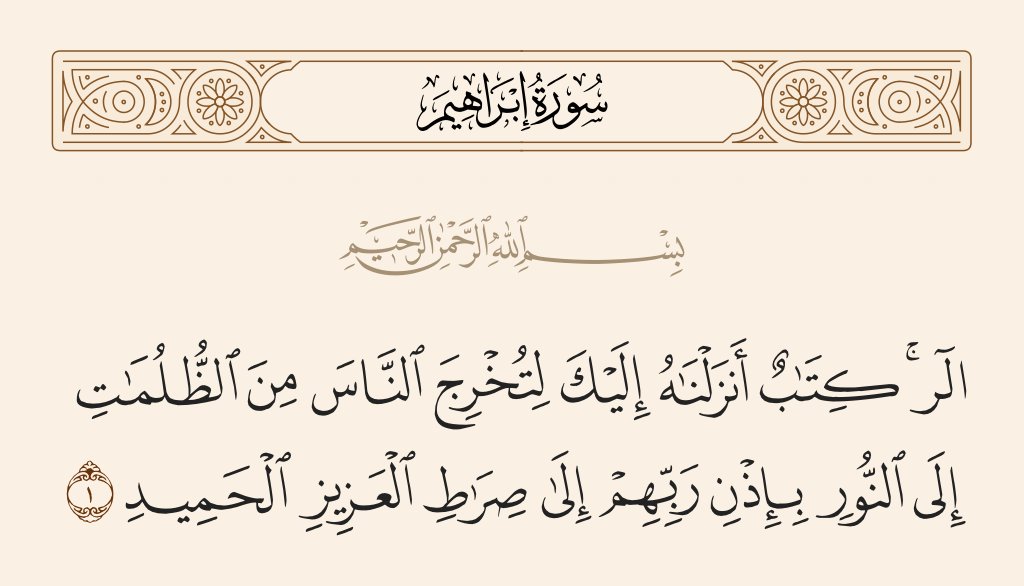 سُورَةُ إِبْرَاهِيمَ
بِسْمِ ٱللَّهِ ٱلرَّحْمَٰنِ ٱلرَّحِيمِ
الٓرۚ كِتَٰبٌ أَنزَلْنَٰهُ إِلَيْكَ لِتُخْرِجَ ٱلنَّاسَ مِنَ ٱلظُّلُمَٰتِ
إِلَى ٱلنُّورِ بِإِذْنِ رَبِّهِمْ إِلَىٰ صِرَٰطِ ٱلْعَزِيزِ ٱلْحَمِيدِ ١